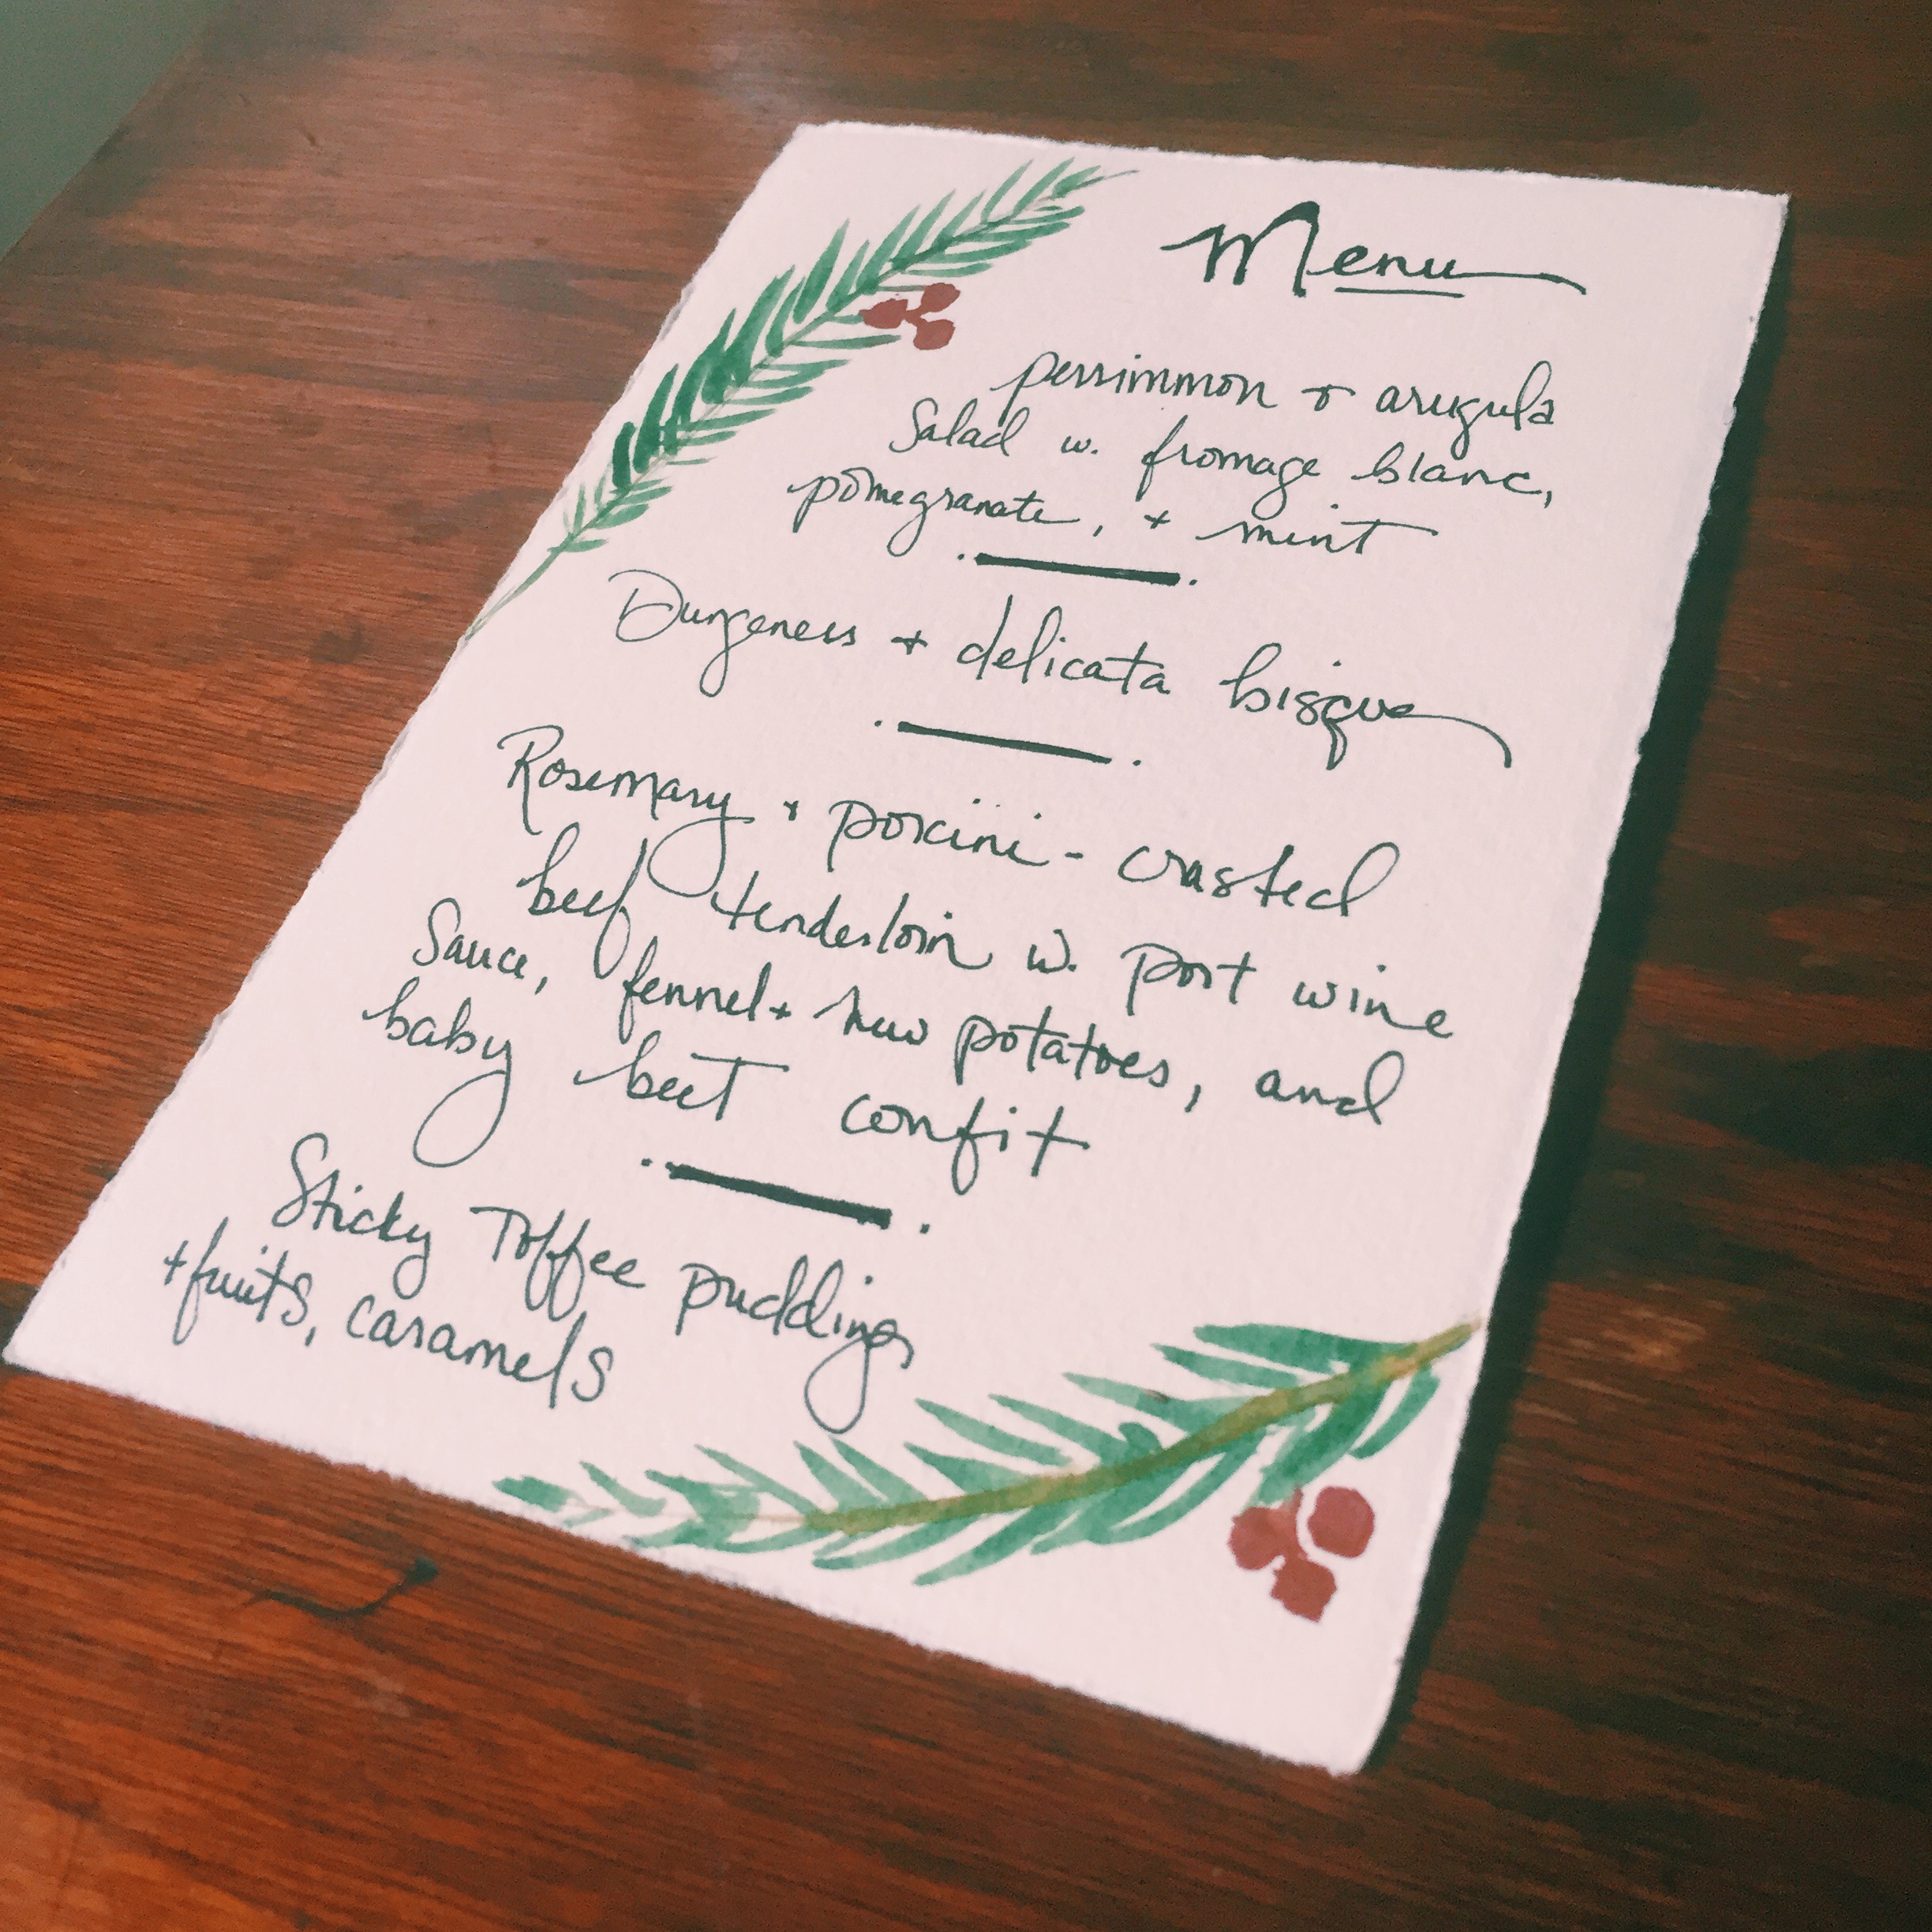 Menu
persimmon & arugula
Salad w. fromage blanc,
pomegranate, + mint
Dungeness + delicata bisque
Rosemary + porcini - crusted
beef tenderloin w. port wine
Sauce, fennel + new potatoes, and
baby beet confit
Sticky Toffee puddings
+ fruits, caramels